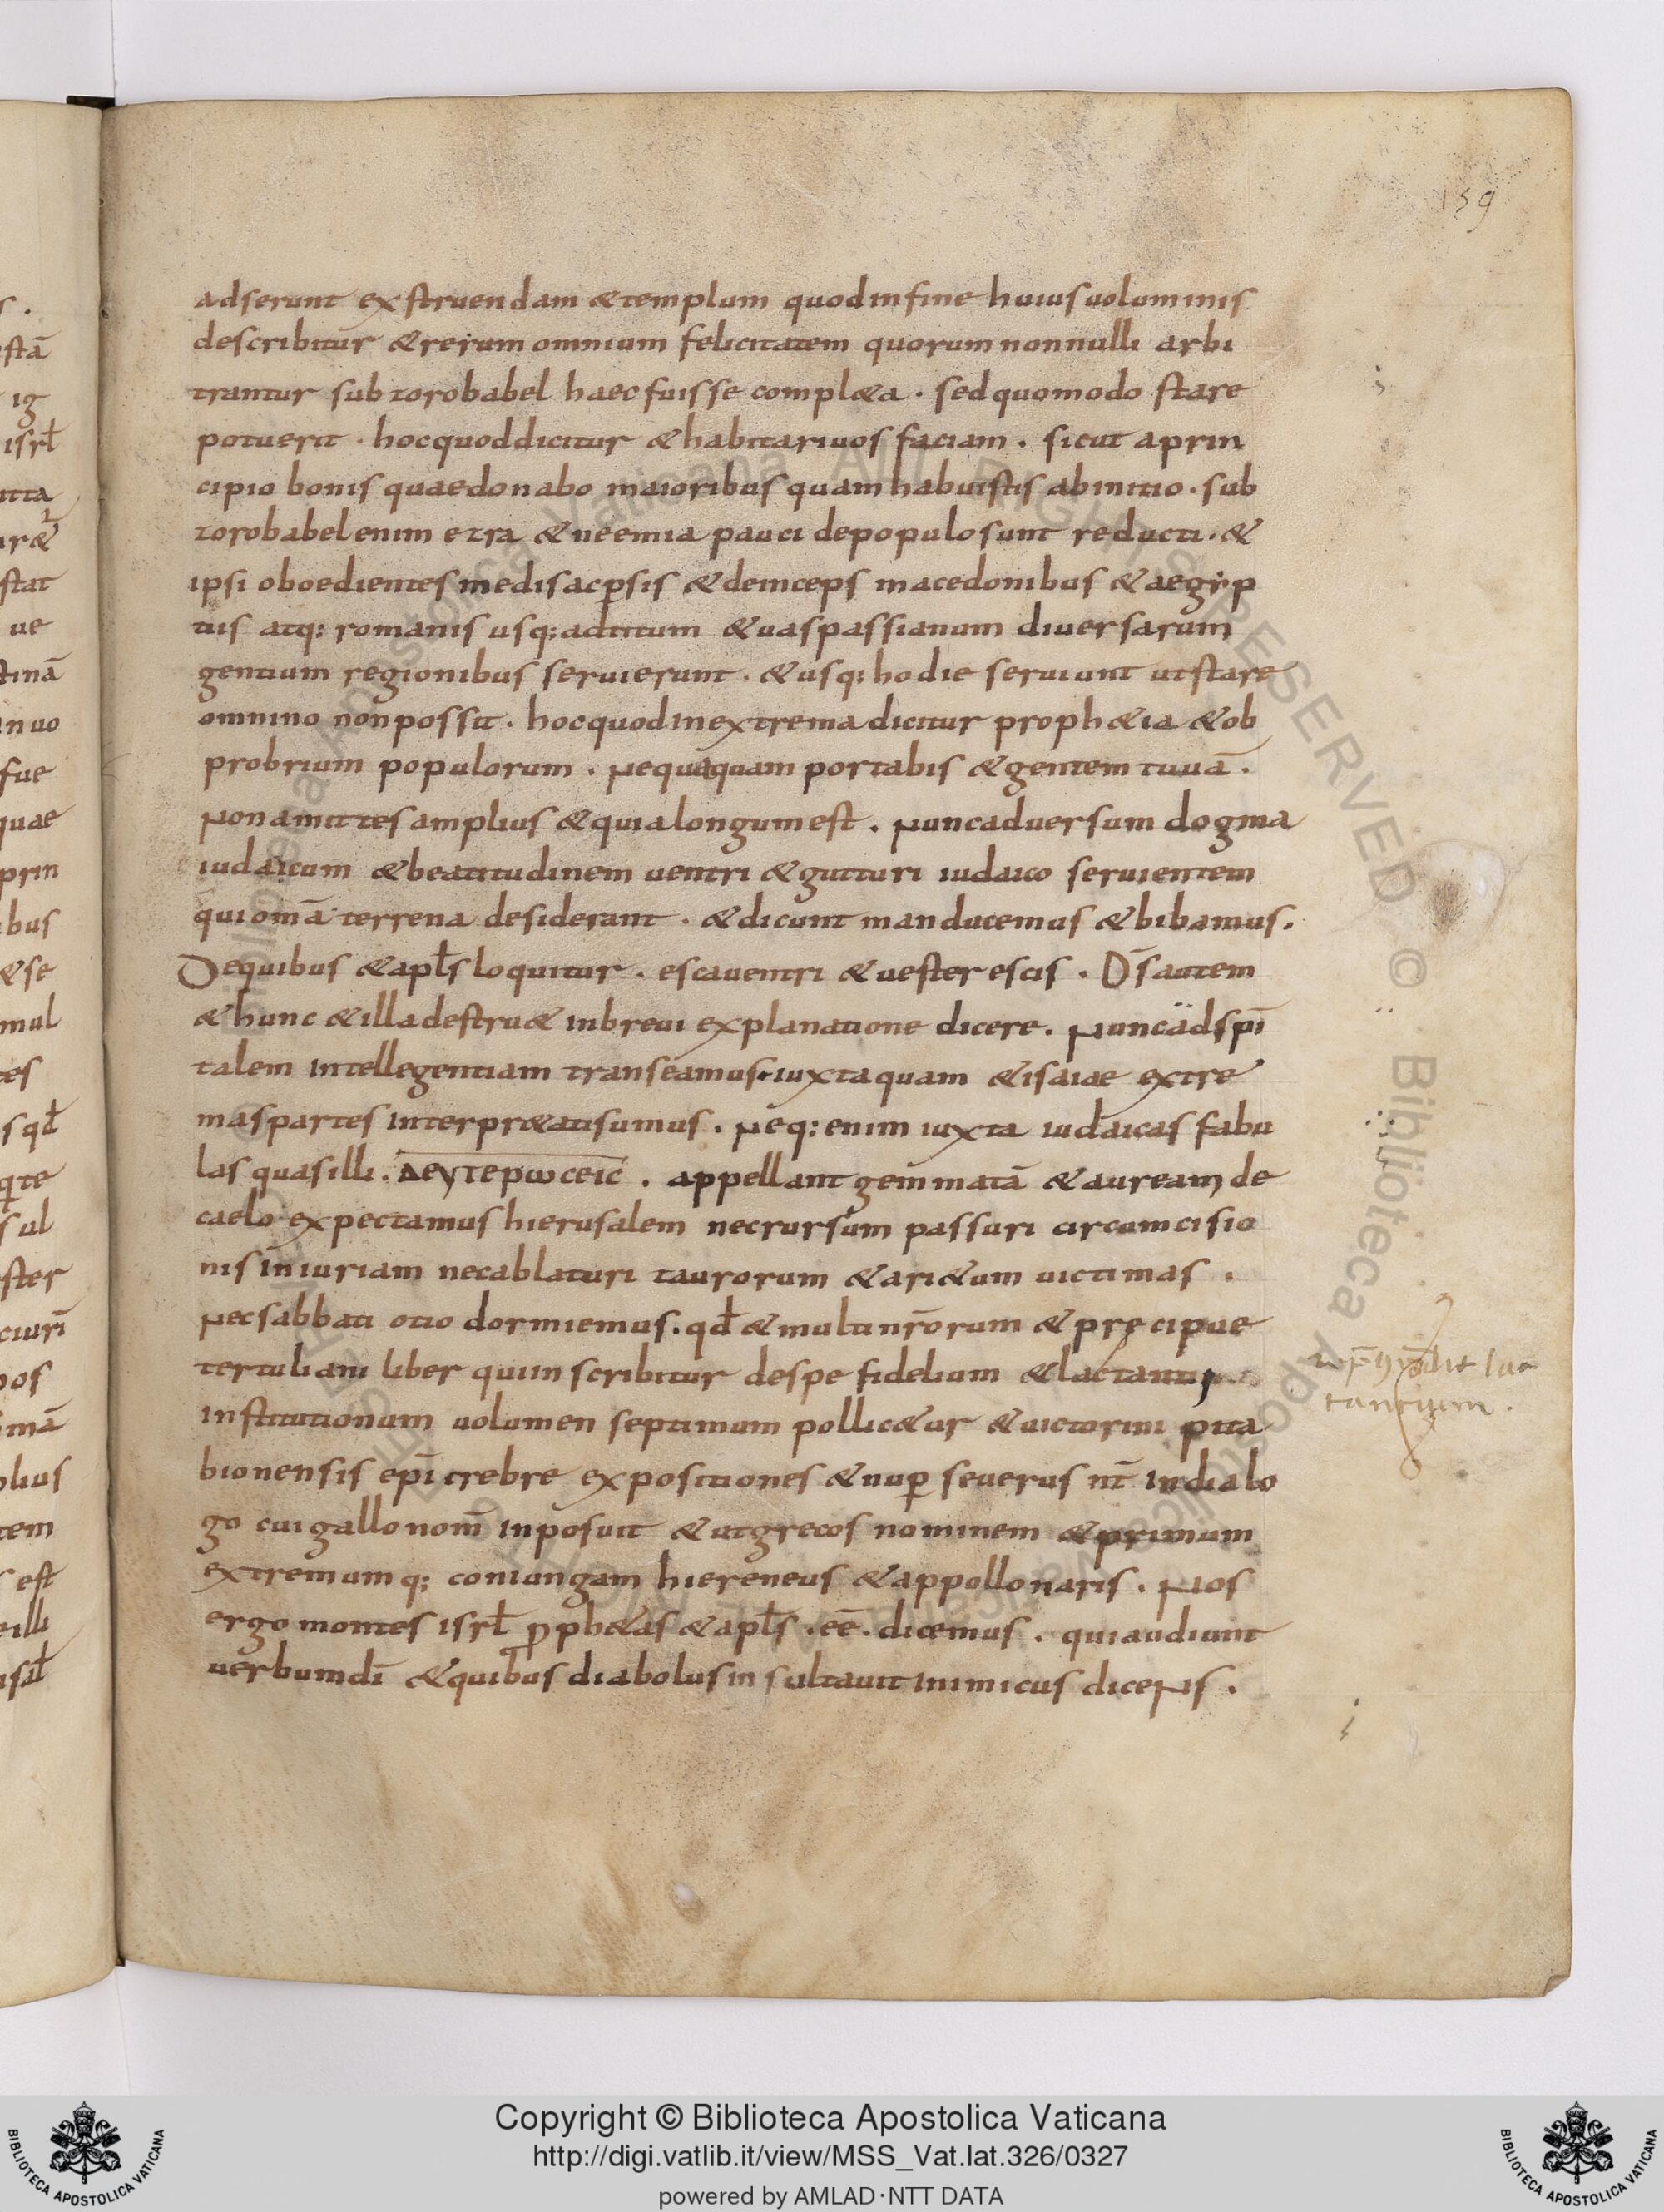 159
adserunt exstruendam & templum quod in fine huius uoluminis
describitur & rerum omnium felicitatem quorum nonnulli arbi
trantur sub zorobabel haec fuisse compl&a . sed quomodo stare
potuerit . hoc quod dicitur & habitari uos faciam . sicut a prin
cipio bonis quae donabo maioribus quam habuistis ab initio . sub
zorobabel enim ezra & neemia pauci de populo sunt reducti . &
ipsi oboedientes medis ac p̄sis & deinceps macedonibus & aegyp
tiis atq: romanis usq: ad titum & uaspassianum diuersarum
gentium regionibus seruierunt . & usq: hodie seruiunt ut stare
omnino non possit . hoc quod in extrema dicitur proph&ia & ob
probrium populorum . Nequaquam portabis & gentem tuuā .
Non amittes amplius & quia longum est . Nunc aduersum dogma
iudaicum & beatitudinem uentri & gutturi iudaico seruientem
qui omā terrena desiderant . & dicunt manducemus & bibamus .
De quibus & apłs loquitur . esca uentri & uester escis . D̄s autem
& hunc & illa destru& in breui explanatione dicere . Nunc ad spī
talem intellegentiam transeamus . iuxta quam & isaiae extre
mas partes interpr&ati sumus . Neq: enim iuxta iudaicas fabu
las quas illi . ΔΕΥΤΕΡωCΕΙC . appellant gemmatā & auream de
caelo expectamus hierusalem nec rursum passuri circumcisio
nis iniuriam nec ablaturi taurorum & ari&um uictimas .
Nec sabbati otio dormiemus . qđ & multi nr̄orum & precipue
tertuliani liber qui inscribitur de spe fidelium & lactantii
institutionum uolumen septimum pollic&ur & uictorini pita
bionensis ep̄i crebre expositiones & nup̄ seuerus nr̄ in dialo
go cui gallo nom̄ inposuit & ut grecos nominem & primum
extremumq: coniungam hiereneus & appollonaris . Nos
ergo montes isrł p̄ph&as & apłs . eē . dicemus . qui audiunt
uerbum dī & quibus diabolus insultauit inimicus dicens .
Copyright © Biblioteca Apostolica Vaticana
http://digi.vatlib.it/view/MSS_Vat.lat.326/0327
powered by AMLAD·NTT DATA
BIBLIOTECA APOSTOLICA VATICANA
BIBLIOTECA APOSTOLICA VATICANA